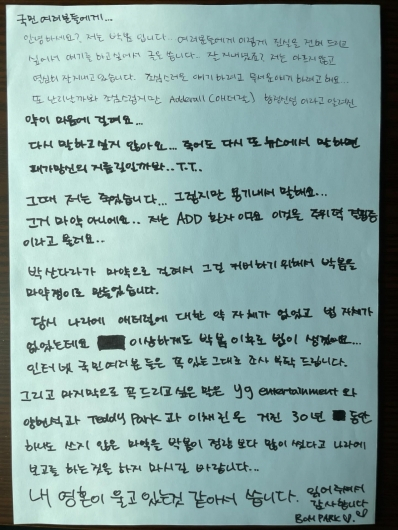 국민 여러분들에게...
안녕하세요? 저는 박봄 입니다... 여러분들에게 이렇게 진심을 전해 드리고
싶어서 얘기를 하고싶어서 글을 씁니다. 잘 지내셨죠? 저는 아주많이
열심히 잘지내고 있습니다. 조심스러운 얘기 하려고 무거운얘기 하려고 해요...
또 난리날까봐 조심스럽지만 Adderall (애더럴) 향정신성 이라고 알려진
약이 마음에 걸려요...
다시 말하고싶지 않아요... 죽어도 다시 또 뉴스에서 말하면
패가망신의 지름길일까봐.. T.T..
그때 저는 죽었습니다... 그렇지만 용기내서 말해요...
그거 마약 아니에요.. 저는 ADD 환자 이며요 이것을 주위력 결핍증
이라고 불러요..
박산다라가 마약으로 걸려서 그걸 커버하기 위해서 박봄을
마약쟁이로 만들었습니다.
당시 나라에 애더럴에 대한 약 자체가 없었고 법 자체가
없었는데요 이상하게도 박봄 이후로 법이 생겼어요...
인터넷 국민여러분 들은 꼭 있는 그대로 조사 부탁 드립니다.
그리고 마지막으로 꼭 드리고 싶은 말은 yg entertainment 와
양현석과 Teddy Park 과 이채린 은 거진 30년 동안
하나도 쓰지 않은 마약을 박봄이 정량 보다 많이 썼다고 나라에
보고를 하는 것을 하지 마시길 바랍니다...
내 영혼이 울고 있는것 같아서 씁니다. 읽어주셔서
감사합니다
BOM PARK